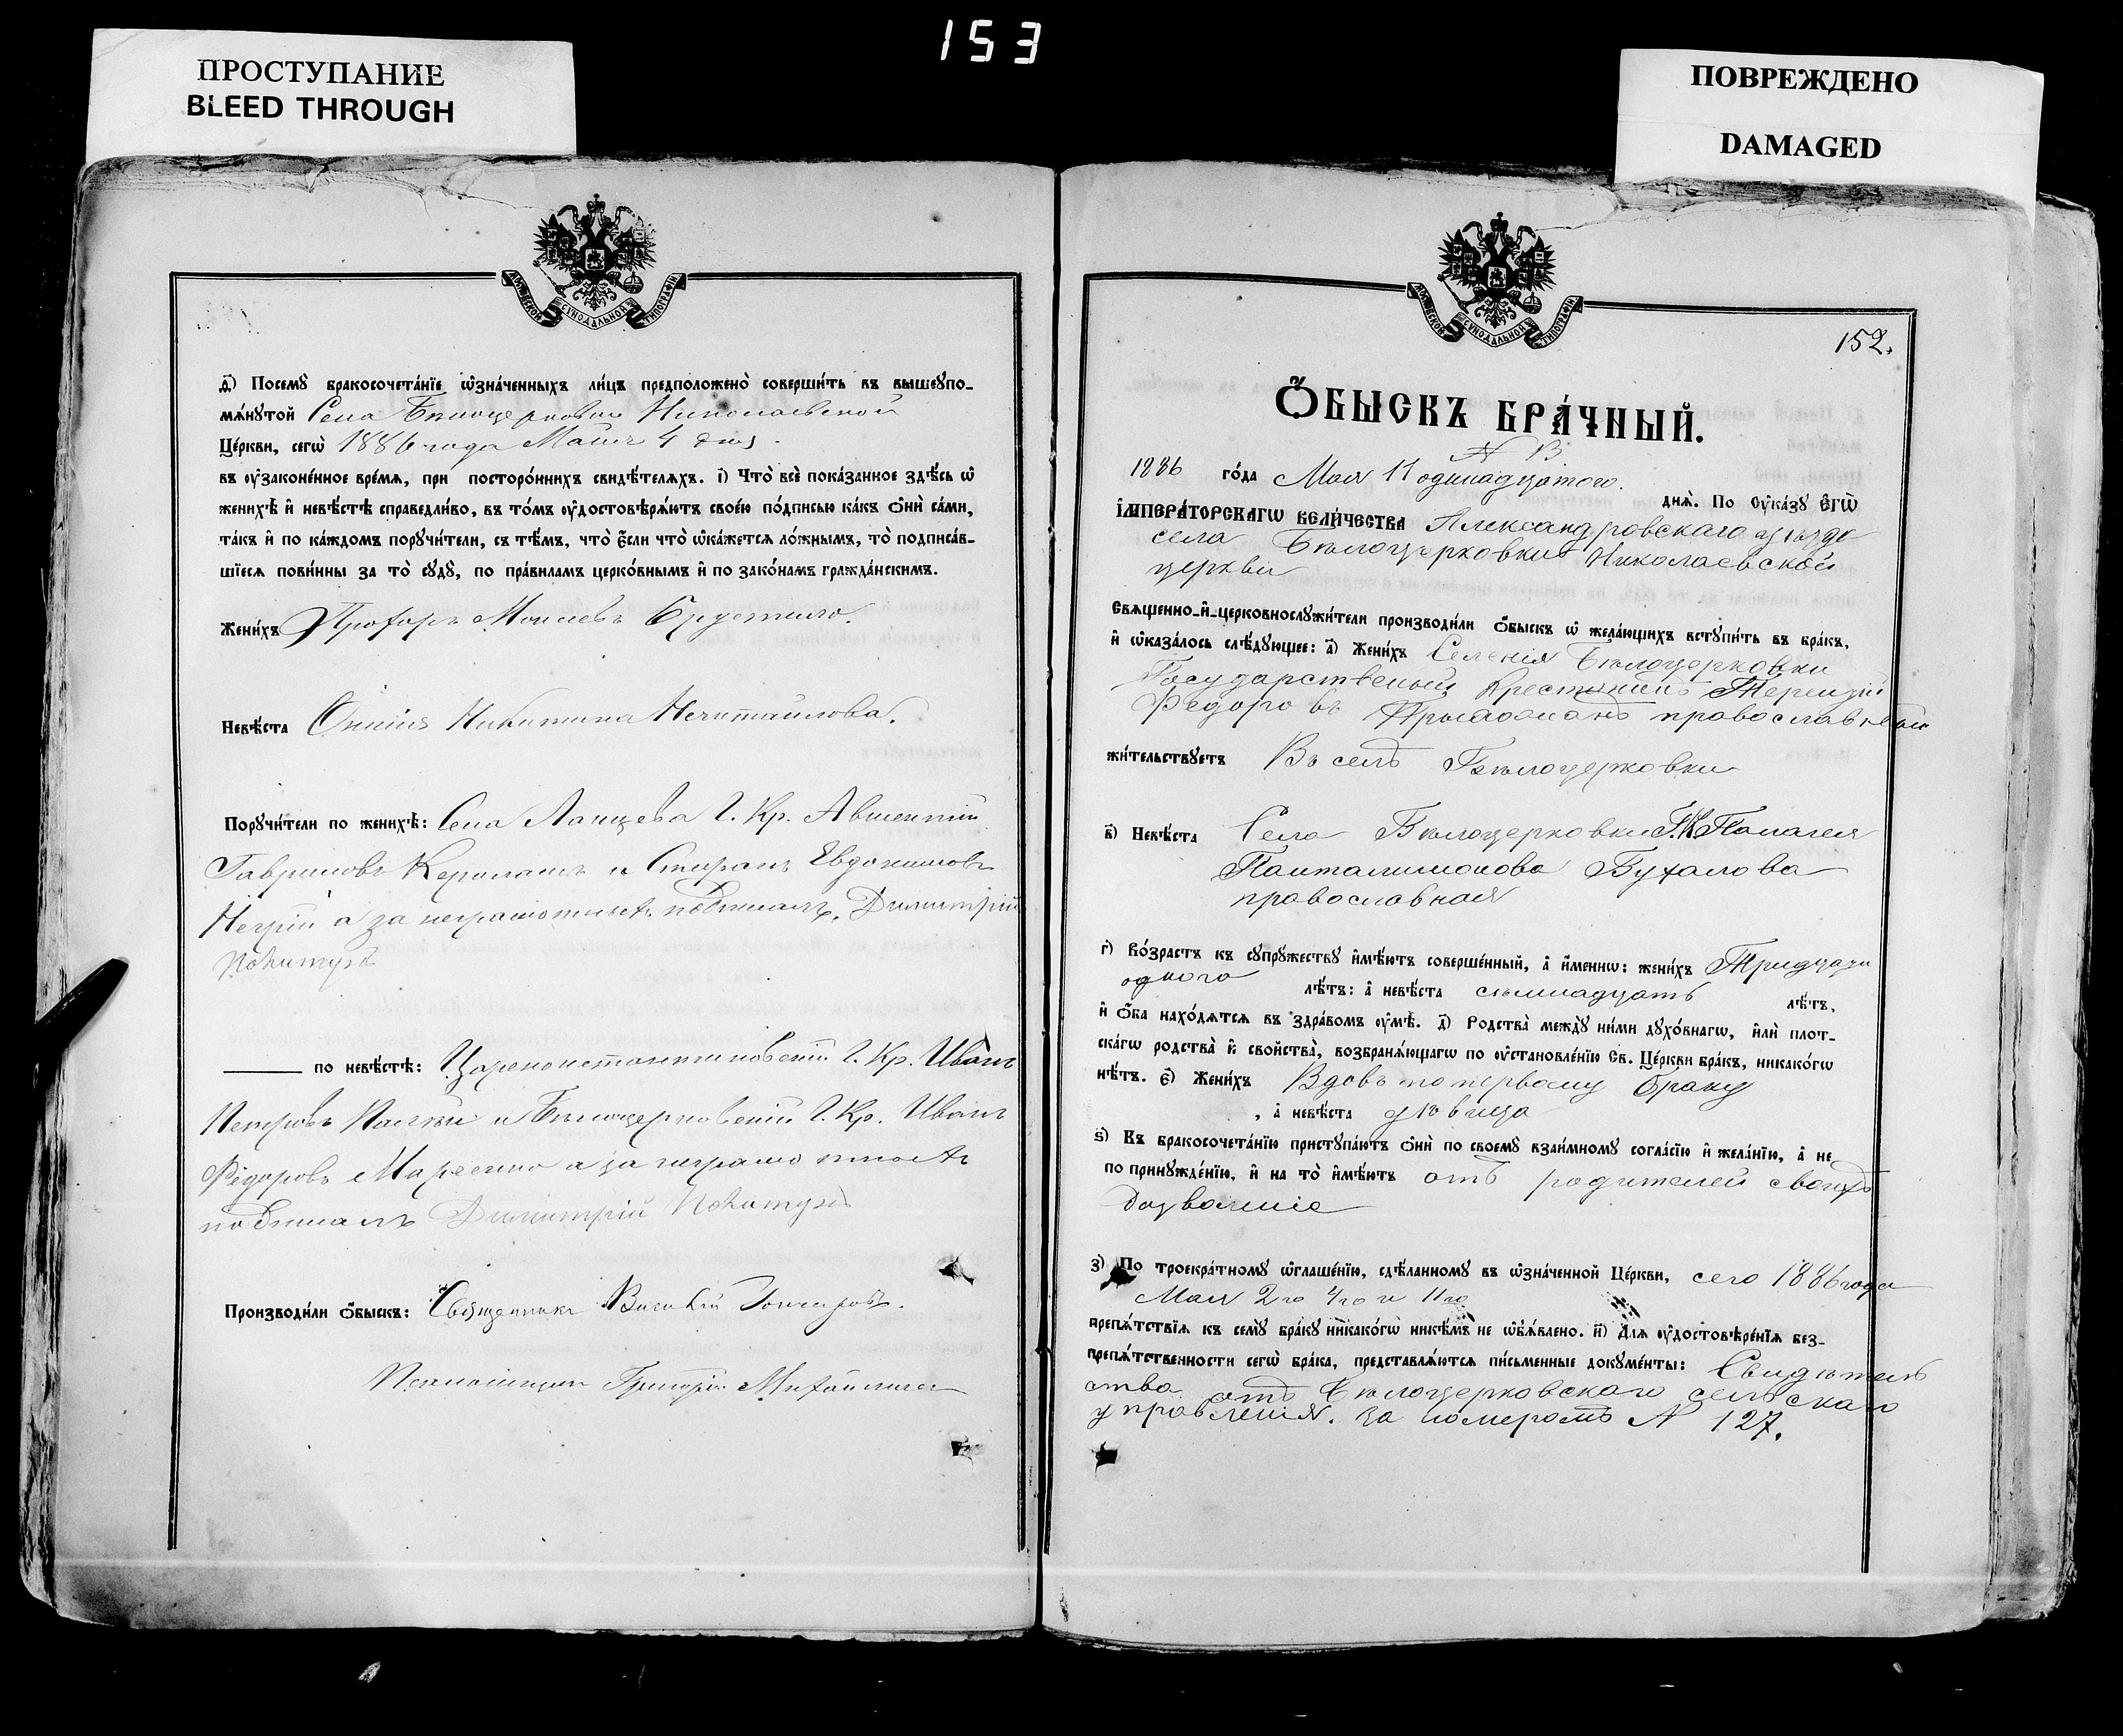 153
ПРОСТУПАНИЕ
BLEED THROUGH
ПОВРЕЖДЕНО
DAMAGED
МОСКОВСКОЙ СѴНОДАЛЬНОЙ ТИПОГРАФІИ
д҃) Посемꙋ̀ бракосочета́нїе ѡ҆зна́ченныхъ ли́цъ предположено̀ соверши́ть въ вышеꙋпо-
мѧ́нꙋтой Села Бѣлоцерковки Николаевской
Це́ркви, сегѡ̀ 1886 года Маія 4 дня.
въ ᲂу҆зако́ненное вре́мѧ, при посторо́ннихъ свидѣ́телѧхъ. і҃) Что̀ всѐ пока́занное здѣ́сь ѡ҆
женихѣ̀ и҆ невѣ́стѣ справедли́во, въ то́мъ ᲂу҆достовѣрѧ́ютъ свое́ю по́дписью ка́къ ѻ҆нѝ са́ми,
та́къ и҆ по ка́ждомъ порꙋчи́тели, съ тѣ́мъ, что̀ є҆́сли что̀ ѡ҆ка́жетсѧ ло́жнымъ, то̀ подписа́в-
шїесѧ пови́нны за то̀ сꙋдꙋ̀, по пра́виламъ церко́внымъ и҆ по зако́намъ гражда́нскимъ.
Жени́хъ Прохоръ Моисеевъ
Невѣ́ста Никитина Нечитайлова.
Порꙋчи́тели по женихѣ̀: Села Ланцева Г. Кр. Авксентий
Гавриловъ и Стефанъ Евдокимовъ
а за неграмотныхъ подписалъ Димитрій
по невѣ́стѣ: Цареконстантиновскій Г. Кр. Иванъ
Петровъ и Бѣлоцерковскій Г. Кр. Иванъ
Федоровъ а за неграмотностъ
подписалъ Димитрій
Производи́ли ѻ҆́быскъ: Священникъ Василій Гончаровъ.
Псаломщикъ Григорій
МОСКОВСКОЙ СѴНОДАЛЬНОЙ ТИПОГРАФІИ
152.
Ѻ҆́БЫСКЪ БРА́ЧНЫЙ.
N 13
1886 го́да Мая 11 одинадцатого. днѧ̀. По ᲂу҆ка́зꙋ Є҆гѡ̀
І҆мпера́торскагѡ вели́чества Александровскаго уѣзда
села Бѣлоцерковки Николаевской
церкви
Свѧще́нно-и҆-церковнослꙋжи́тели производи́ли ѻ҆́быскъ ѡ҆ жела́ющихъ встꙋпи́ть въ бра́къ,
и҆ ѡ҆каза́лось слѣ́дꙋющее: а҃) Жени́хъ Селенія Бѣлоцерковки
Государственый Крестянинъ Терендій
Федоровъ православный
жи́тельствꙋетъ Въ селѣ Бѣлоцерковки
в҃) Невѣ́ста Села Бѣлоцерковки Г.К Палагея
Панталимонова Бухалова
православная
г҃) Во́зрастъ къ сꙋпрꙋ́жествꙋ и҆мѣ́ютъ соверше́нный, а҆ и҆́меннѡ: жени́хъ Тридцати
одного лѣ́тъ: а҆ невѣ́ста сѣмнадцать лѣ́тъ,
и҆ ѻ҆́ба нахо́дѧтсѧ въ здра́вомъ ᲂу҆мѣ̀. д҃) Родства̀ междꙋ̀ ни́ми дꙋхо́внагѡ, и҆лѝ плот-
ска́гѡ родства̀ и҆ свойства̀, возбранѧ́ющагѡ по ᲂу҆становле́нїю Св. Це́ркви бра́къ, никако́гѡ
нѣ́тъ. є҃) Жени́хъ Вдовъ по первому браку
, а҆ невѣ́ста дѣвица
ѕ҃) Къ бракосочета́нїю пристꙋпа́ютъ ѻ҆нѝ по своемꙋ̀ взаи́мномꙋ согла́сїю и҆ жела́нїю, а҆ не
по принꙋжде́нїю, и҆ на то̀ и҆мѣ́ютъ отъ родителей своихъ
дозволеніе
з҃) По троекра́тномꙋ ѡ҆глаше́нїю, сдѣ́ланномꙋ въ ѡ҆зна́ченной Це́ркви, сего 1886 года
Мая 2го 4го и 11го
препѧ́тствїѧ къ семꙋ̀ бра́кꙋ никако́гѡ никѣ́мъ не ѡ҆бъѧ́влено. и҃) Длѧ ᲂу҆достовѣре́нїѧ без-
препѧ́тственности сегѡ̀ бра́ка, представлѧ́ютсѧ пи́сьменные докꙋме́нты: Свидѣтель
ство отъ Бѣлоцерковскаго сельскаго
управленія. за номеромъ N 127.